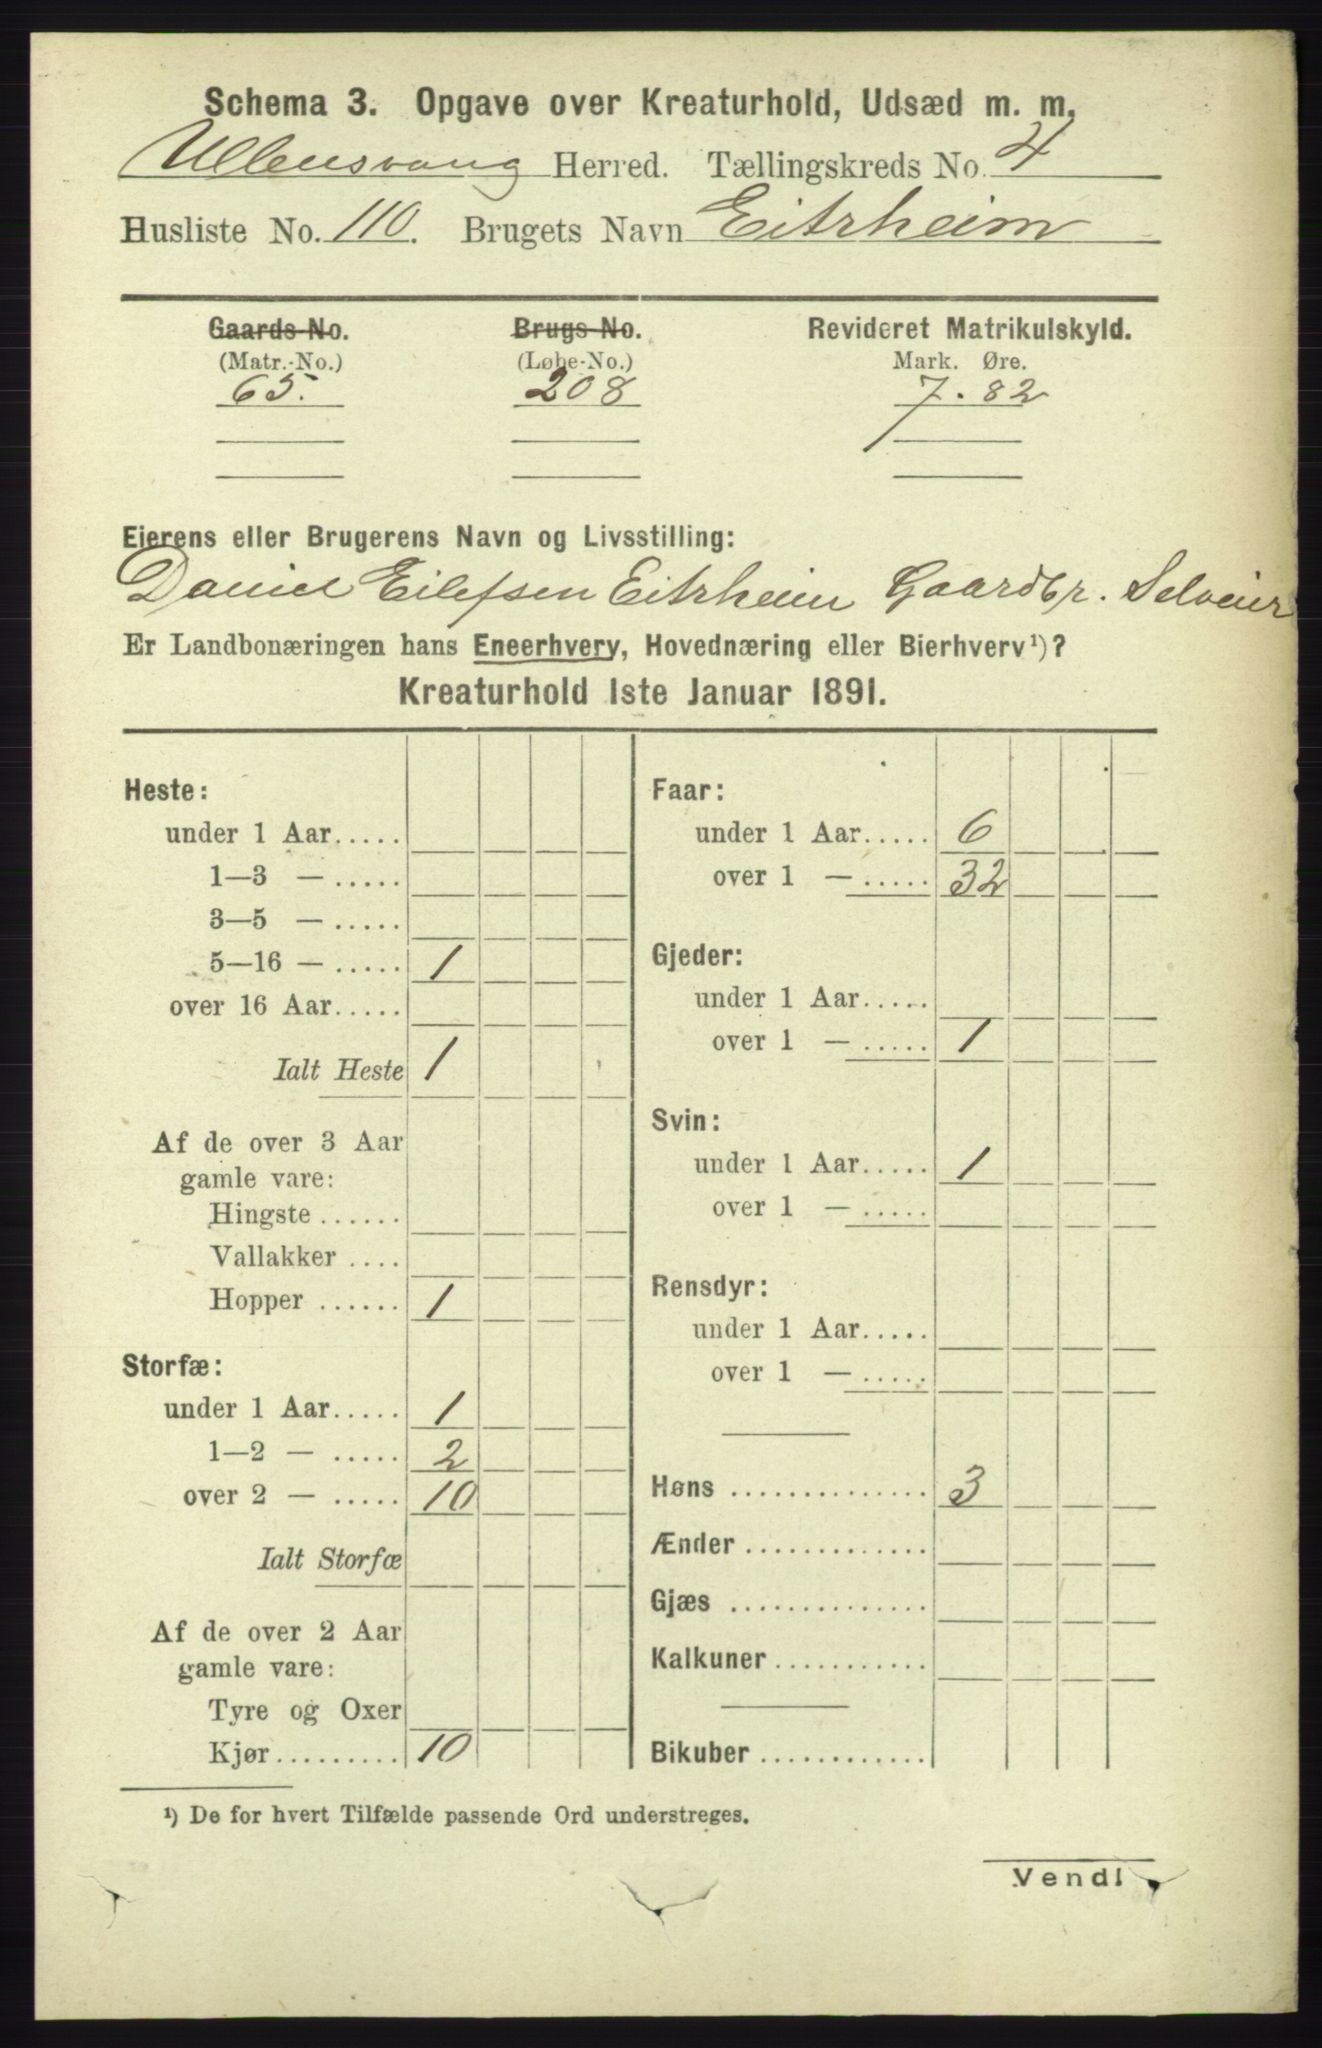 Schema 3. Opgave over Kreaturhold, Udsæd m. m.
Ullensvang Herred. Tællingskreds No. 4
Husliste No. 110. Brugets Navn Eitrheim
Gaards-No. Brugs-No. Revideret Matrikulskyld.
(Matr.-No.) (Løbe-No.) Mark. Øre.
65. 208 7. 82
Eierens eller Brugerens Navn og Livsstilling:
Daniel Eilefsen Eitrheim Gaardbr. Selveier
Er Landbonæringen hans Eneerhverv, Hovednæring eller Bierhverv¹)?
Kreaturhold 1ste Januar 1891.
Heste:
under 1 Aar.....
1—3 — .....
3—5 — .....
5—16 — ..... 1
over 16 Aar.....
Ialt Heste 1
Af de over 3 Aar
gamle vare:
Hingste ......
Vallakker ....
Hopper ...... 1
Storfæ:
under 1 Aar..... 1
1—2 — ..... 2
over 2 — ..... 10
Ialt Storfæ
Af de over 2 Aar
gamle vare:
Tyre og Oxer
Kjør......... 10
Faar:
under 1 Aar..... 6
over 1 — ..... 32
Gjeder:
under 1 Aar.....
over 1 — ..... 1
Svin:
under 1 Aar..... 1
over 1 — .....
Rensdyr:
under 1 Aar.....
over 1 — .....
Høns .............. 3
Ænder .............
Gjæs ..............
Kalkuner ...........
Bikuber ............
¹) De for hvert Tilfælde passende Ord understreges.
Vend!